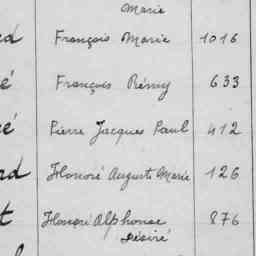 Marie
d François Marie 1016
é François Rémy 633
é Pierre Jacques Paul 412
rd Honoré Auguste Marie 126
t Honoré Alphonse 876
Désiré